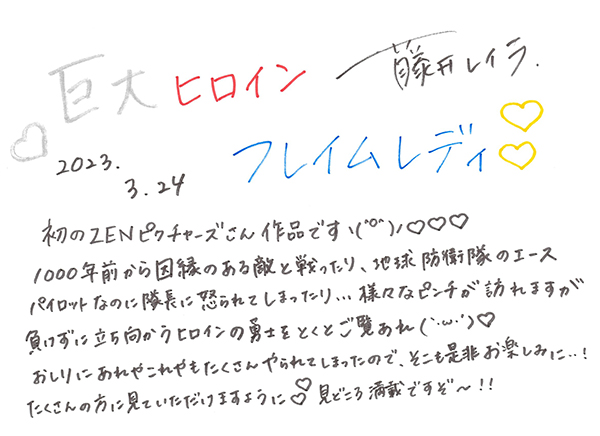 巨大ヒロイン 藤井レイラ.
2023.
3.24
フレイムレディ♡♡
初のZENピクチャーズさん作品ですヽ(°▽°)ノ♡♡♡
1000年前から因縁のある敵と戦ったり、地球防衛隊のエース
パイロットなのに隊長に怒られてしまったり…様々なピンチが訪れますが
負けずに立ち向かうヒロインの勇士をとくとご覧あれ(`･ω･´)♡
おしりにあれやこれやもたくさんやられてしまったので、そこも是非お楽しみに..!
たくさんの方に見ていただけますように♡見どころ満載ですぞ〜!!